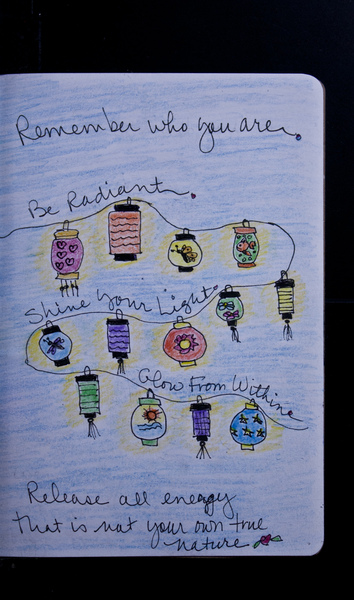 Remember who you are.
Be Radiant.
Shine Your Light.
Glow From Within.
Release all energy
that is not your own true
nature.